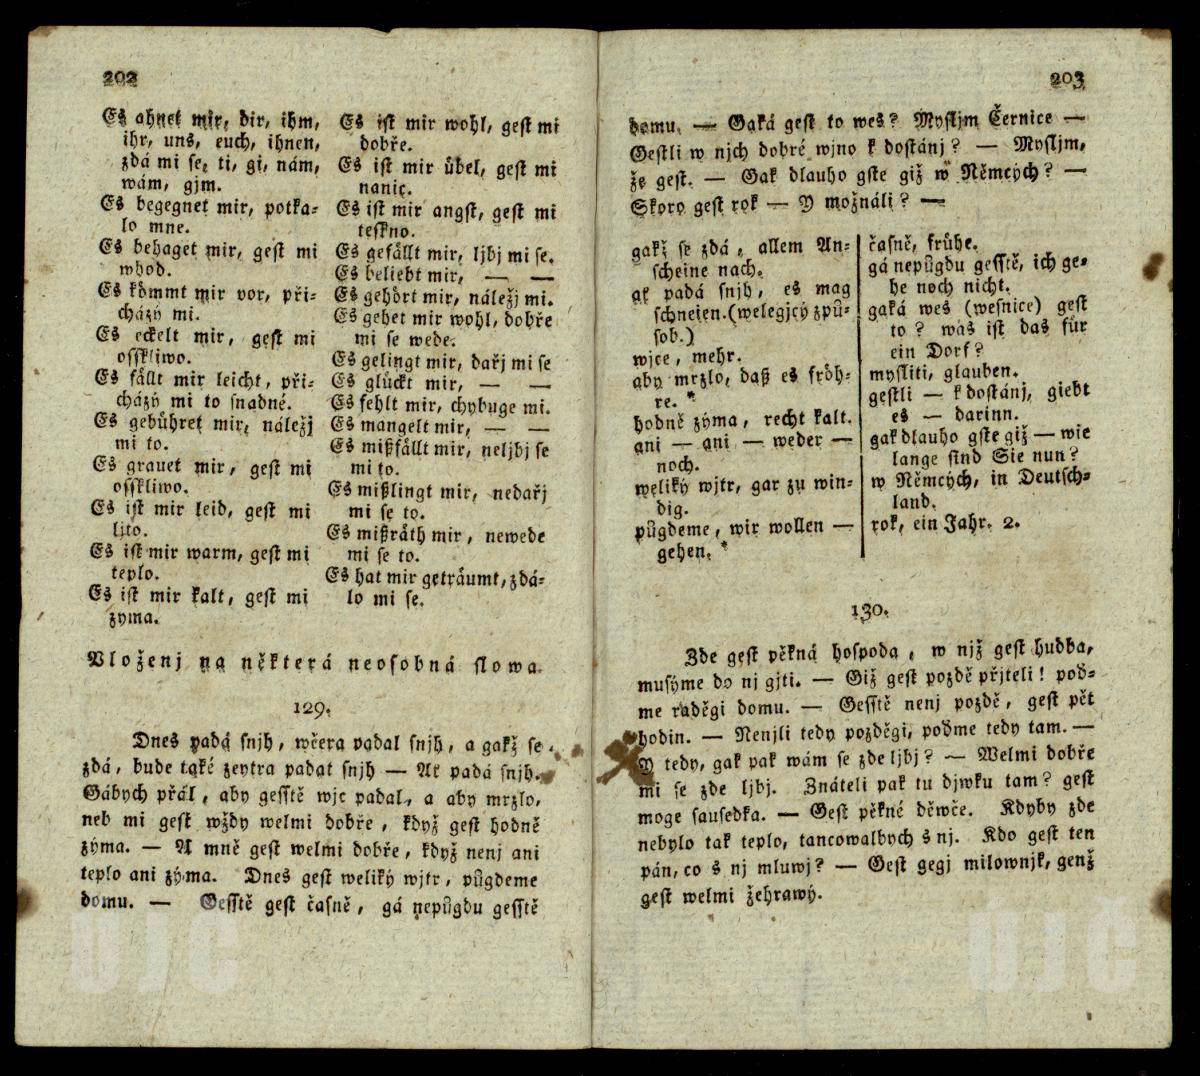 202
Es ahnet mir, dir, ihm,
ihr, uns, euch, ihnen,
zdá mi se, ti, gi, nám,
wám, gjm.
Es begegnet mir, potka-
lo mne.
Es behaget mir, gest mi
whod.
Es kömmt mir vor, při-
cházý mi.
Es eckelt mir, gest mi
osskliwo.
Es fällt mir leicht, při-
cházý mi to snadné.
Es gebühret mir, náležj
mi to.
Es grauet mir, gest mi
osskliwo.
Es ist mir leid, gest mi
ljto.
Es ist mir warm, gest mi
teplo.
Es ist mir kalt, gest mi
zyma.
Es ist mir wohl, gest mi
dobře.
Es ist mir übel, gest mi
nanic.
Es ist mir angst, gest mi
teskno.
Es gefällt mir, ljbj mi se.
Es beliebt mir, — —
Es gehört mir, náležj mi.
Es gehet mir wohl, dobře
mi se wede.
Es gelingt mir, dařj mi se
Es glückt mir, — —
Es fehlt mir, chybuge mi.
Es mangelt mir, — —
Es mißfällt mir, neljbj se
mi to.
Es mißlingt mir, nedařj
mi se to.
Es mißräth mir, newede
mi se to.
Es hat mir geträumt, zdá-
lo mi se.
Vloženj na některá neosobná slowa.
129.
Dnes padá snjh, wčera padal snjh, a gakž se
zdá, bude také zeytra padat snjh — Ať padá snjh.
Gábych přál, aby gesstě wjc padal, a aby mrzlo,
neb mi gest wždy welmi dobře, když gest hodně
zýma. — A mně gest welmi dobře, když nenj ani
teplo ani zýma. Dnes gest weliký wjtr, půgdeme
domu. — Gesstě gest časně, gá nepůgdu gesstě
203
domu. — Gaká gest to wes? Mysljm Černice —
Gestli w njch dobré wjno k dostánj? — Mysljm,
že gest. — Gak dlauho gste giž w Němcých? —
Skoro gest rok — Y možnáli? —
gakž se zdá, allem An-
scheine nach.
ať padá snjh, es mag
schneien. (welegjcý způ-
sob.)
wjce, mehr.
aby mrzlo, daß es fröh-
re. *
hodně zýma, recht kalt.
ani — ani — weder —
noch.
weliký wjtr, gar zu win-
dig.
půgdeme, wir wollen —
gehen. *
časně, frühe.
gá nepůgdu gesstě, ich ge-
he noch nicht.
gaká wes (wesnice) gest
to? was ist das für
ein Dorf?
mysliti, glauben.
gestli — k dostánj, giebt
es — darinn.
gak dlauho gste giž — wie
lange sind Sie nun?
w Němcých, in Deutsch-
land.
rok, ein Jahr. 2.
130.
Zde gest pěkná hospoda, w njž gest hudba,
musýme do nj gjti. — Giž gest pozdě přjteli! poď-
me raděgi domu. — Gesstě nenj pozdě, gest pět
hodin. — Nenjli tedy pozděgi, poďme tedy tam. —
Y tedy, gak pak wám se zde ljbj? — Welmi dobře
mi se zde ljbj. Znáteli pak tu djwku tam? gest
moge sausedka. — Gest pěkné děwče. Kdyby zde
nebylo tak teplo, tancowalbych s nj. Kdo gest ten
pán, co s nj mluwj? — Gest gegj milownjk, genž
gest welmi žehrawý.
ÚJČ
ÚJČ